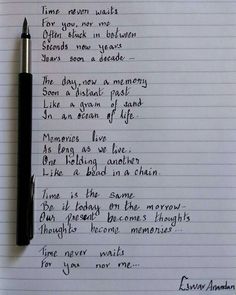 Time never waits
For you, nor me
Often stuck in between
Seconds now years
Years soon a decade...
The day, now a memory
Soon a distant past
Like a grain of sand
In an ocean of life.
Memories live
As long as we live.
One holding another
Like a bead in a chain.
Time is the same
Be it today or the morrow..
Our present becomes thoughts
Thoughts become memories...
Time never waits
For you nor me...
Eswar Anandan